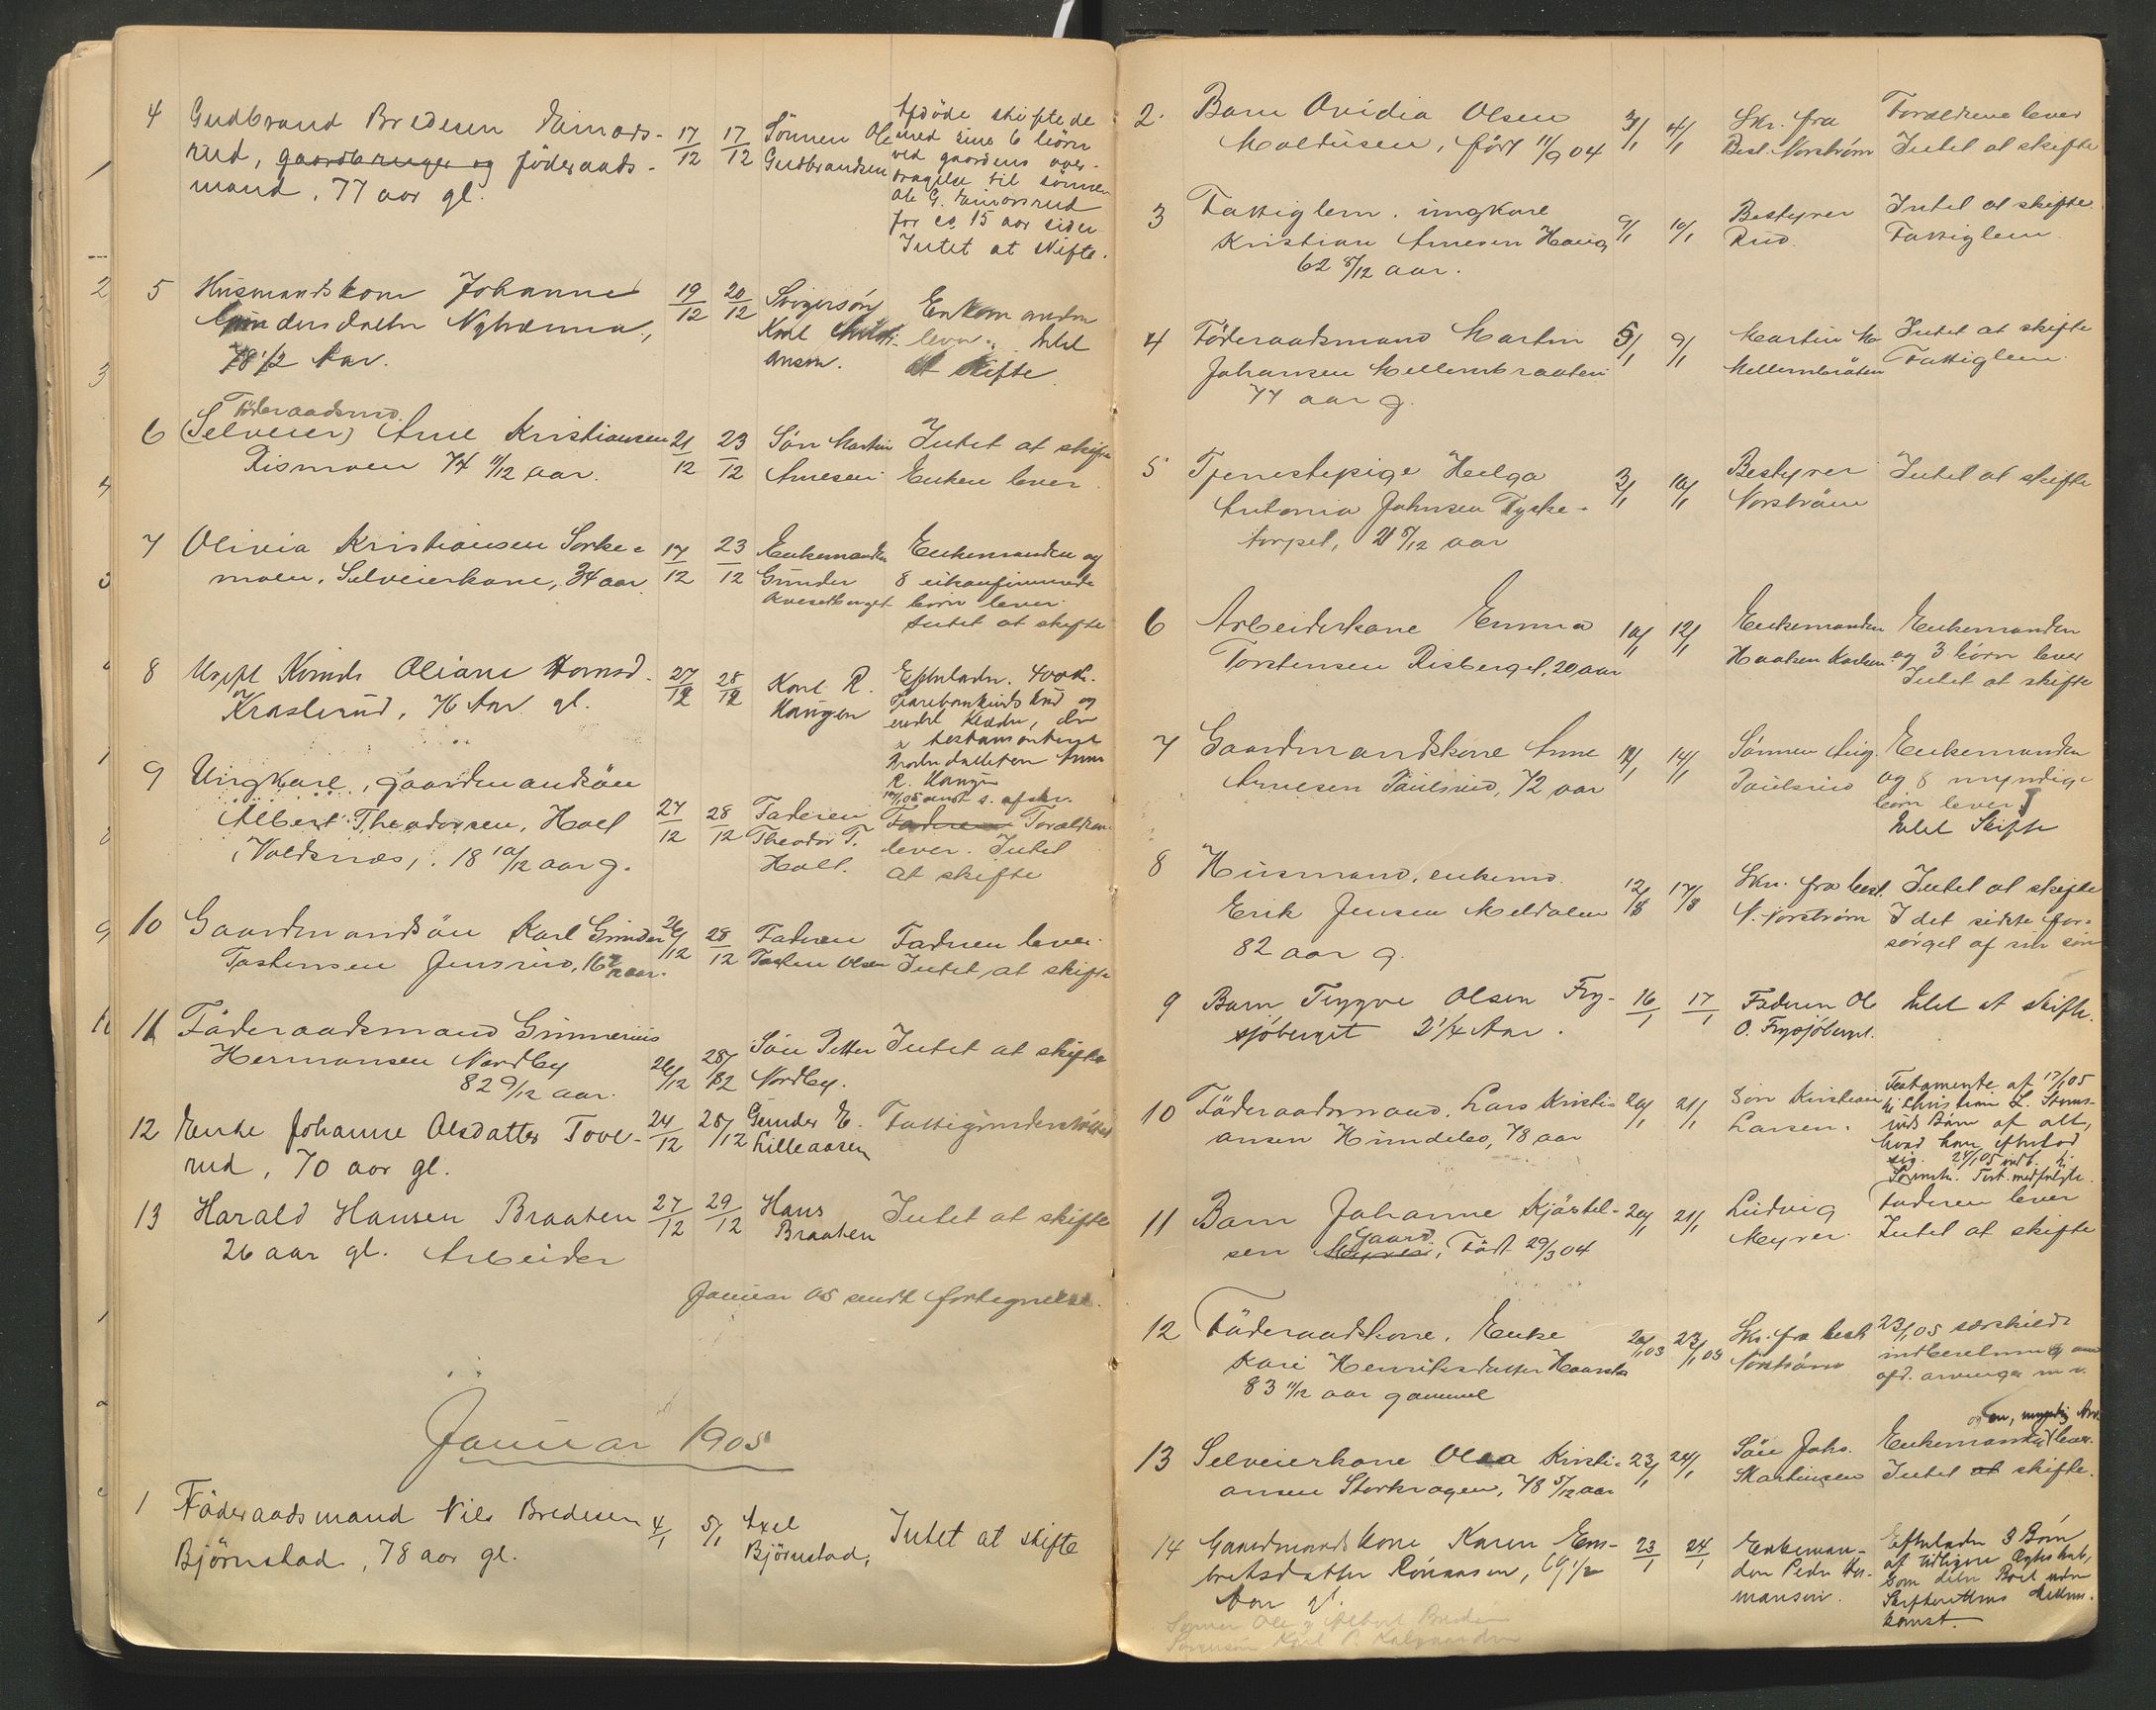 4 Gudbrand Bredesen Eimods- 17/12 17/12 Sönnen Ole Afdöde skiftede
rud, gaardbruger og föderaads- Gudbrandsen med sine 6 börn
mand, 77 aar gl. ved gaardens over-
dragelse til sönnen
Ole G.
for ca. 15 aar siden
Intet at skifte.
5 Husmandskone Johanne 19/12 20/12 Svigersön Enkemanden
Karl lever. Intet
78 1/2 Aar. ansen. at skifte
Föderaadsmd.
6 (Selveier) Arne Kristiansen 21/12 23/12 Sön Martin Intet at skifte
Rismoen 74 11/12 aar. Arnesen Enken lever.
7 Olivia Kristiansen Sorke- 17/12 23/12 Enkemanden Enkemanden og
moen, Selveierkone, 34 aar. Gunder 8 uikonfirmerede
börn lever.
Intet at skifte
8 Ugift Kvinde Oliane 27/12 28/12 Karl R. Efterlader 400 kr.
Kraslerud, 76 Aar gl. Haugen Sparebankindskud og
endel Klæder, der
er testamenteret
Broderdatteren
R. Haugen
9 Ungkarl, gaardmandsön
Albert Theodorsen, Holt 27/12 28/12 Faderen Faderen Forældrene
(Voldsnæs), 18 10/12 aar g. Theodor T. lever. Intet
Holt. at skifte
10 Gaardmandsön Karl Gunder 26/12 28/12 Faderen Faderen lever.
Tostensen Jensrud, 16 aar. Olsen Intet at skifte
11 Föderaadsmand Gunnerius
Hermansen Nordby 26/12 28/12 Sön Petter Intet at skifte
82 9/12 aar. Nordby.
12 Enke Johanne Olsdatter Tove- 24/12 28/12 Gunder E. Fattigunderstöttet
rud, 70 aar gl. Lilleaasen
13 Harald Hansen Braaten 27/12 29/12 Hans Intet at skifte
26 aar gl. Arbeider Braaten
Januar 05 sendt fortegnelse.
Januar 1905
1 Föderaadsmand Nils Bredesen 4/1 5/1 Axel Intet at skifte
Björnstad, 78 aar gl. Björnstad,
2. Barn Ovidia Olsen 3/1 4/1 Skr. fra Forældrene lever
Moldusen, född 11/9 04 Best. Norström Intet at skifte
3 Fattiglem. ungkarl 9/1 10/1 Bestyrer Intet at skifte.
Kristian Arnesen Haug Rud. Fattiglem.
62 8/12 aar.
4 Föderaadsmand Martin 5/1 9/1 Martin Intet at skifte
Johansen Mellembraaten Mellembråten Fattiglem.
77 aar g.
5 Tjenestepige Helga 3/1 10/1 Bestyrer Intet at skifte
Antonia Johnsen Tyske- Norström
torpet, 21 8/12 aar
6 Arbeiderkone Emma 10/1 12/1 Enkemanden Enkemanden
Torstensen Risberget, 20 aar og 3 börn lever
Intet at skifte
7 Gaardmandskone Anne 12/1 14/1 Sönnen Aug. Enkemanden
Arnesen Paulsrud, 72 aar Paulsrud og 8 myndige
börn lever
Intet Skifte
8 Husmand, enkemd. Skr. fra best. Intet at skifte
Erik Jensen Meldalen 12/1 17/1 N. Norström I det sidste for-
82 aar g. sörget af sin sön
9 Barn Trygve Olsen Fry- 16/1 17/1 Faderen Ole Intet at Skifte.
sjöberget 2 1/4 Aar. O. Frysjöberget.
10 Föderaadsmand. Lars Kristi- 20/1 21/1 Sön Kristian Testamente af 17/1 05
ansen Hundelos, 78 aar Larsen. til Christian L.
Börn af alt,
hvad han efterlod
sig. 24/1 05 indb. til
Sorenskr. Test. medfulgte.
11 Barn Johanne Kjöstel- 20/1 21/1 Ludvig Faderen lever
sen Gaard, Födt 29/3 04 Meyrer. Intet at skifte
12 Föderaadskone. Enke 20/1 03 23/1 03 Skr. fra best 23/1 05 særskildt
Kari Henriksdatter Norström indberetning om
83 11/12 aar gammel afd. arvinger m. v.
13 Selveierkone Olea Kristi- 23/1 24/1 Sön Johs. Enkemand lever.
ansen Storkragen, 78 5/12 aar Martinsen Intet at skifte.
14 Gaardmandskone Karen Em- 23/1 24/1 Enkeman- Efterlader 3 Börn
bretsdatter 69 1/2 den Peder Her- af tidligere Ægteskab,
Aar gl. mansen. som deler Boet uden
Skifterettens Mellem-
komst.